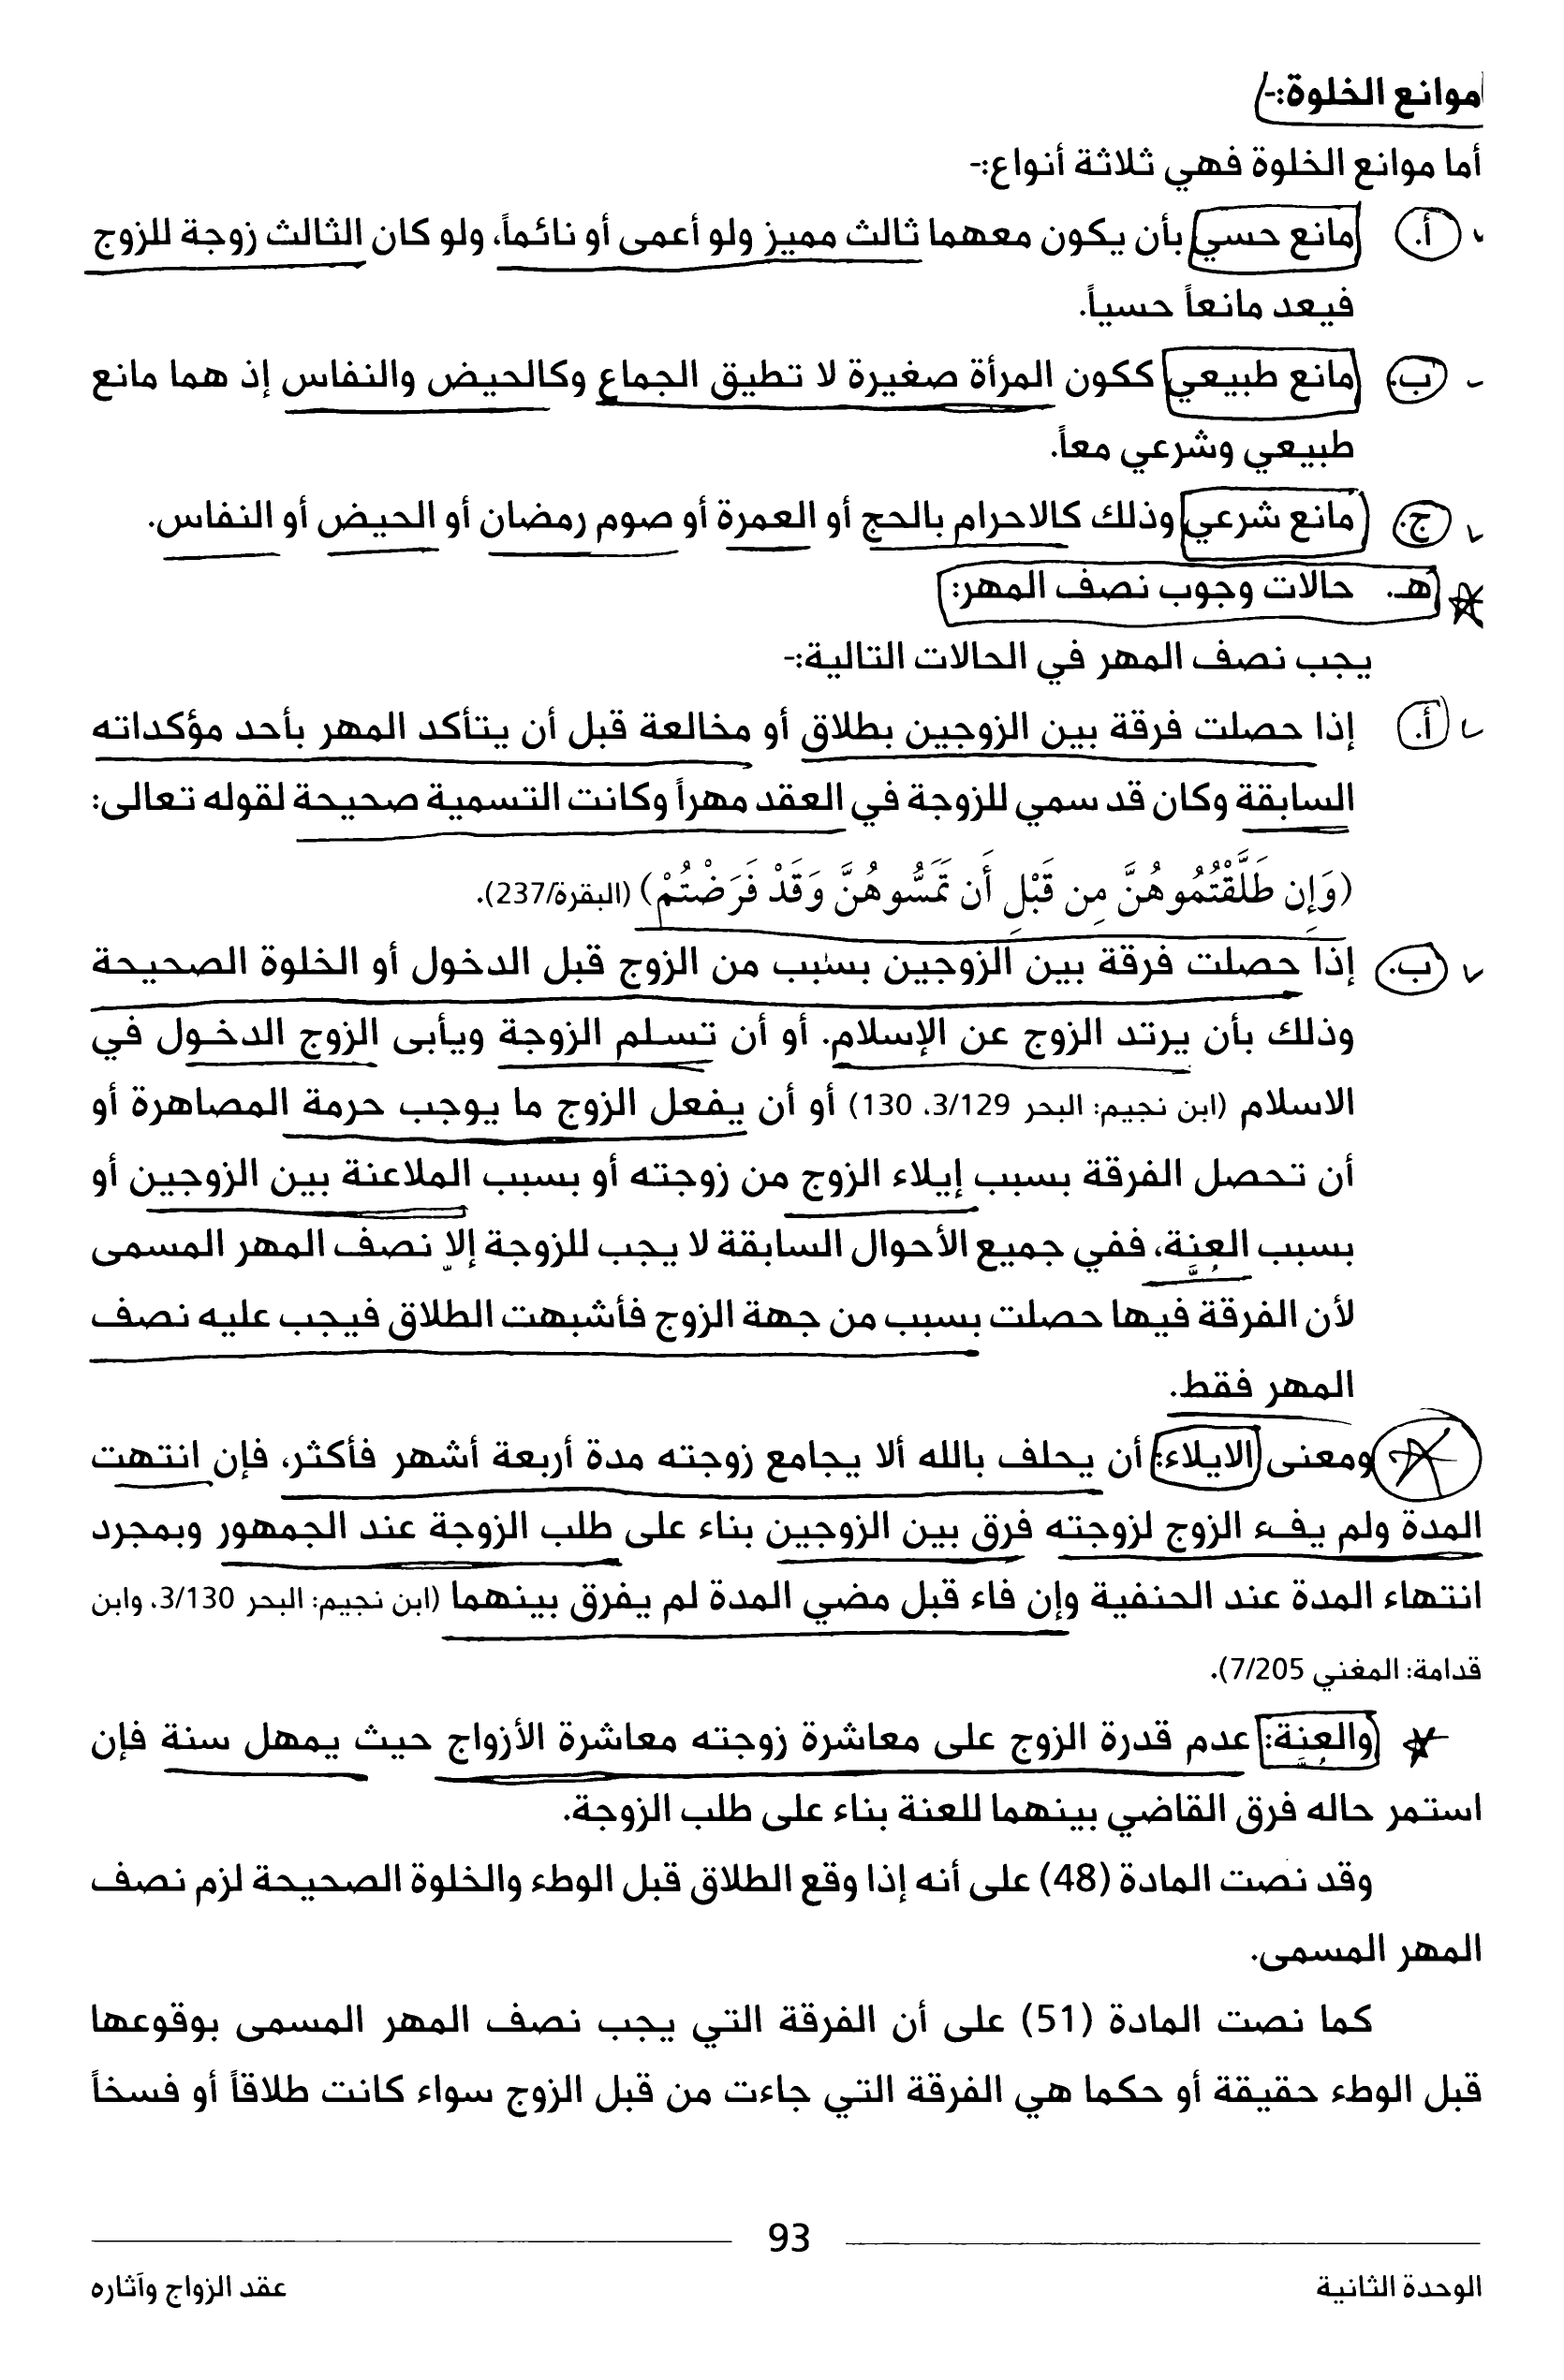 موانع الخلوة:-
أما موانع الخلوة فهي ثلاثة أنواع:-
أ. مانع حسي بأن يكون معهما ثالث مميز ولو أعمى أو نائماً، ولو كان الثالث زوجة للزوج
فيعد مانعاً حسياً.
ب. مانع طبيعي ككون المرأة صغيرة لا تطيق الجماع وكالحيض والنفاس إذ هما مانع
طبيعي وشرعي معاً.
ج. مانع شرعي وذلك كالاحرام بالحج أو العمرة أو صوم رمضان أو الحيض أو النفاس.
هـ. حالات وجوب نصف المهر:
يجب نصف المهر في الحالات التالية:-
أ. إذا حصلت فرقة بين الزوجين بطلاق أو مخالعة قبل أن يتأكد المهر بأحد مؤكداته
السابقة وكان قد سمي للزوجة في العقد مهراً وكانت التسمية صحيحة لقوله تعالى:
(وَإِن طَلَّقْتُمُوهُنَّ مِن قَبْلِ أَن تَمَسُّوهُنَّ وَقَدْ فَرَضْتُمْ) (البقرة/237).
ب. إذا حصلت فرقة بين الزوجين بسبب من الزوج قبل الدخول أو الخلوة الصحيحة
وذلك بأن يرتد الزوج عن الإسلام. أو أن تسلم الزوجة ويأبى الزوج الدخول في
الاسلام (ابن نجيم: البحر 3/129، 130) أو أن يفعل الزوج ما يوجب حرمة المصاهرة أو
أن تحصل الفرقة بسبب إيلاء الزوج من زوجته أو بسبب الملاعنة بين الزوجين أو
بسبب العِنَّة، ففي جميع الأحوال السابقة لا يجب للزوجة إلاّ نصف المهر المسمى
لأن الفرقة فيها حصلت بسبب من جهة الزوج فأشبهت الطلاق فيجب عليه نصف
المهر فقط.
ومعنى الايلاء: أن يحلف بالله ألا يجامع زوجته مدة أربعة أشهر فأكثر، فإن انتهت
المدة ولم يفء الزوج لزوجته فرق بين الزوجين بناء على طلب الزوجة عند الجمهور وبمجرد
انتهاء المدة عند الحنفية وإن فاء قبل مضي المدة لم يفرق بينهما (ابن نجيم: البحر 3/130، وابن
قدامة: المغني 7/205).
والعِنَّة: عدم قدرة الزوج على معاشرة زوجته معاشرة الأزواج حيث يمهل سنة فإن
استمر حاله فرق القاضي بينهما للعنة بناء على طلب الزوجة.
وقد نصت المادة (48) على أنه إذا وقع الطلاق قبل الوطء والخلوة الصحيحة لزم نصف
المهر المسمى.
كما نصت المادة (51) على أن الفرقة التي يجب نصف المهر المسمى بوقوعها
قبل الوطء حقيقة أو حكما هي الفرقة التي جاءت من قبل الزوج سواء كانت طلاقاً أو فسخاً
93
الوحدة الثانية
عقد الزواج وآثاره